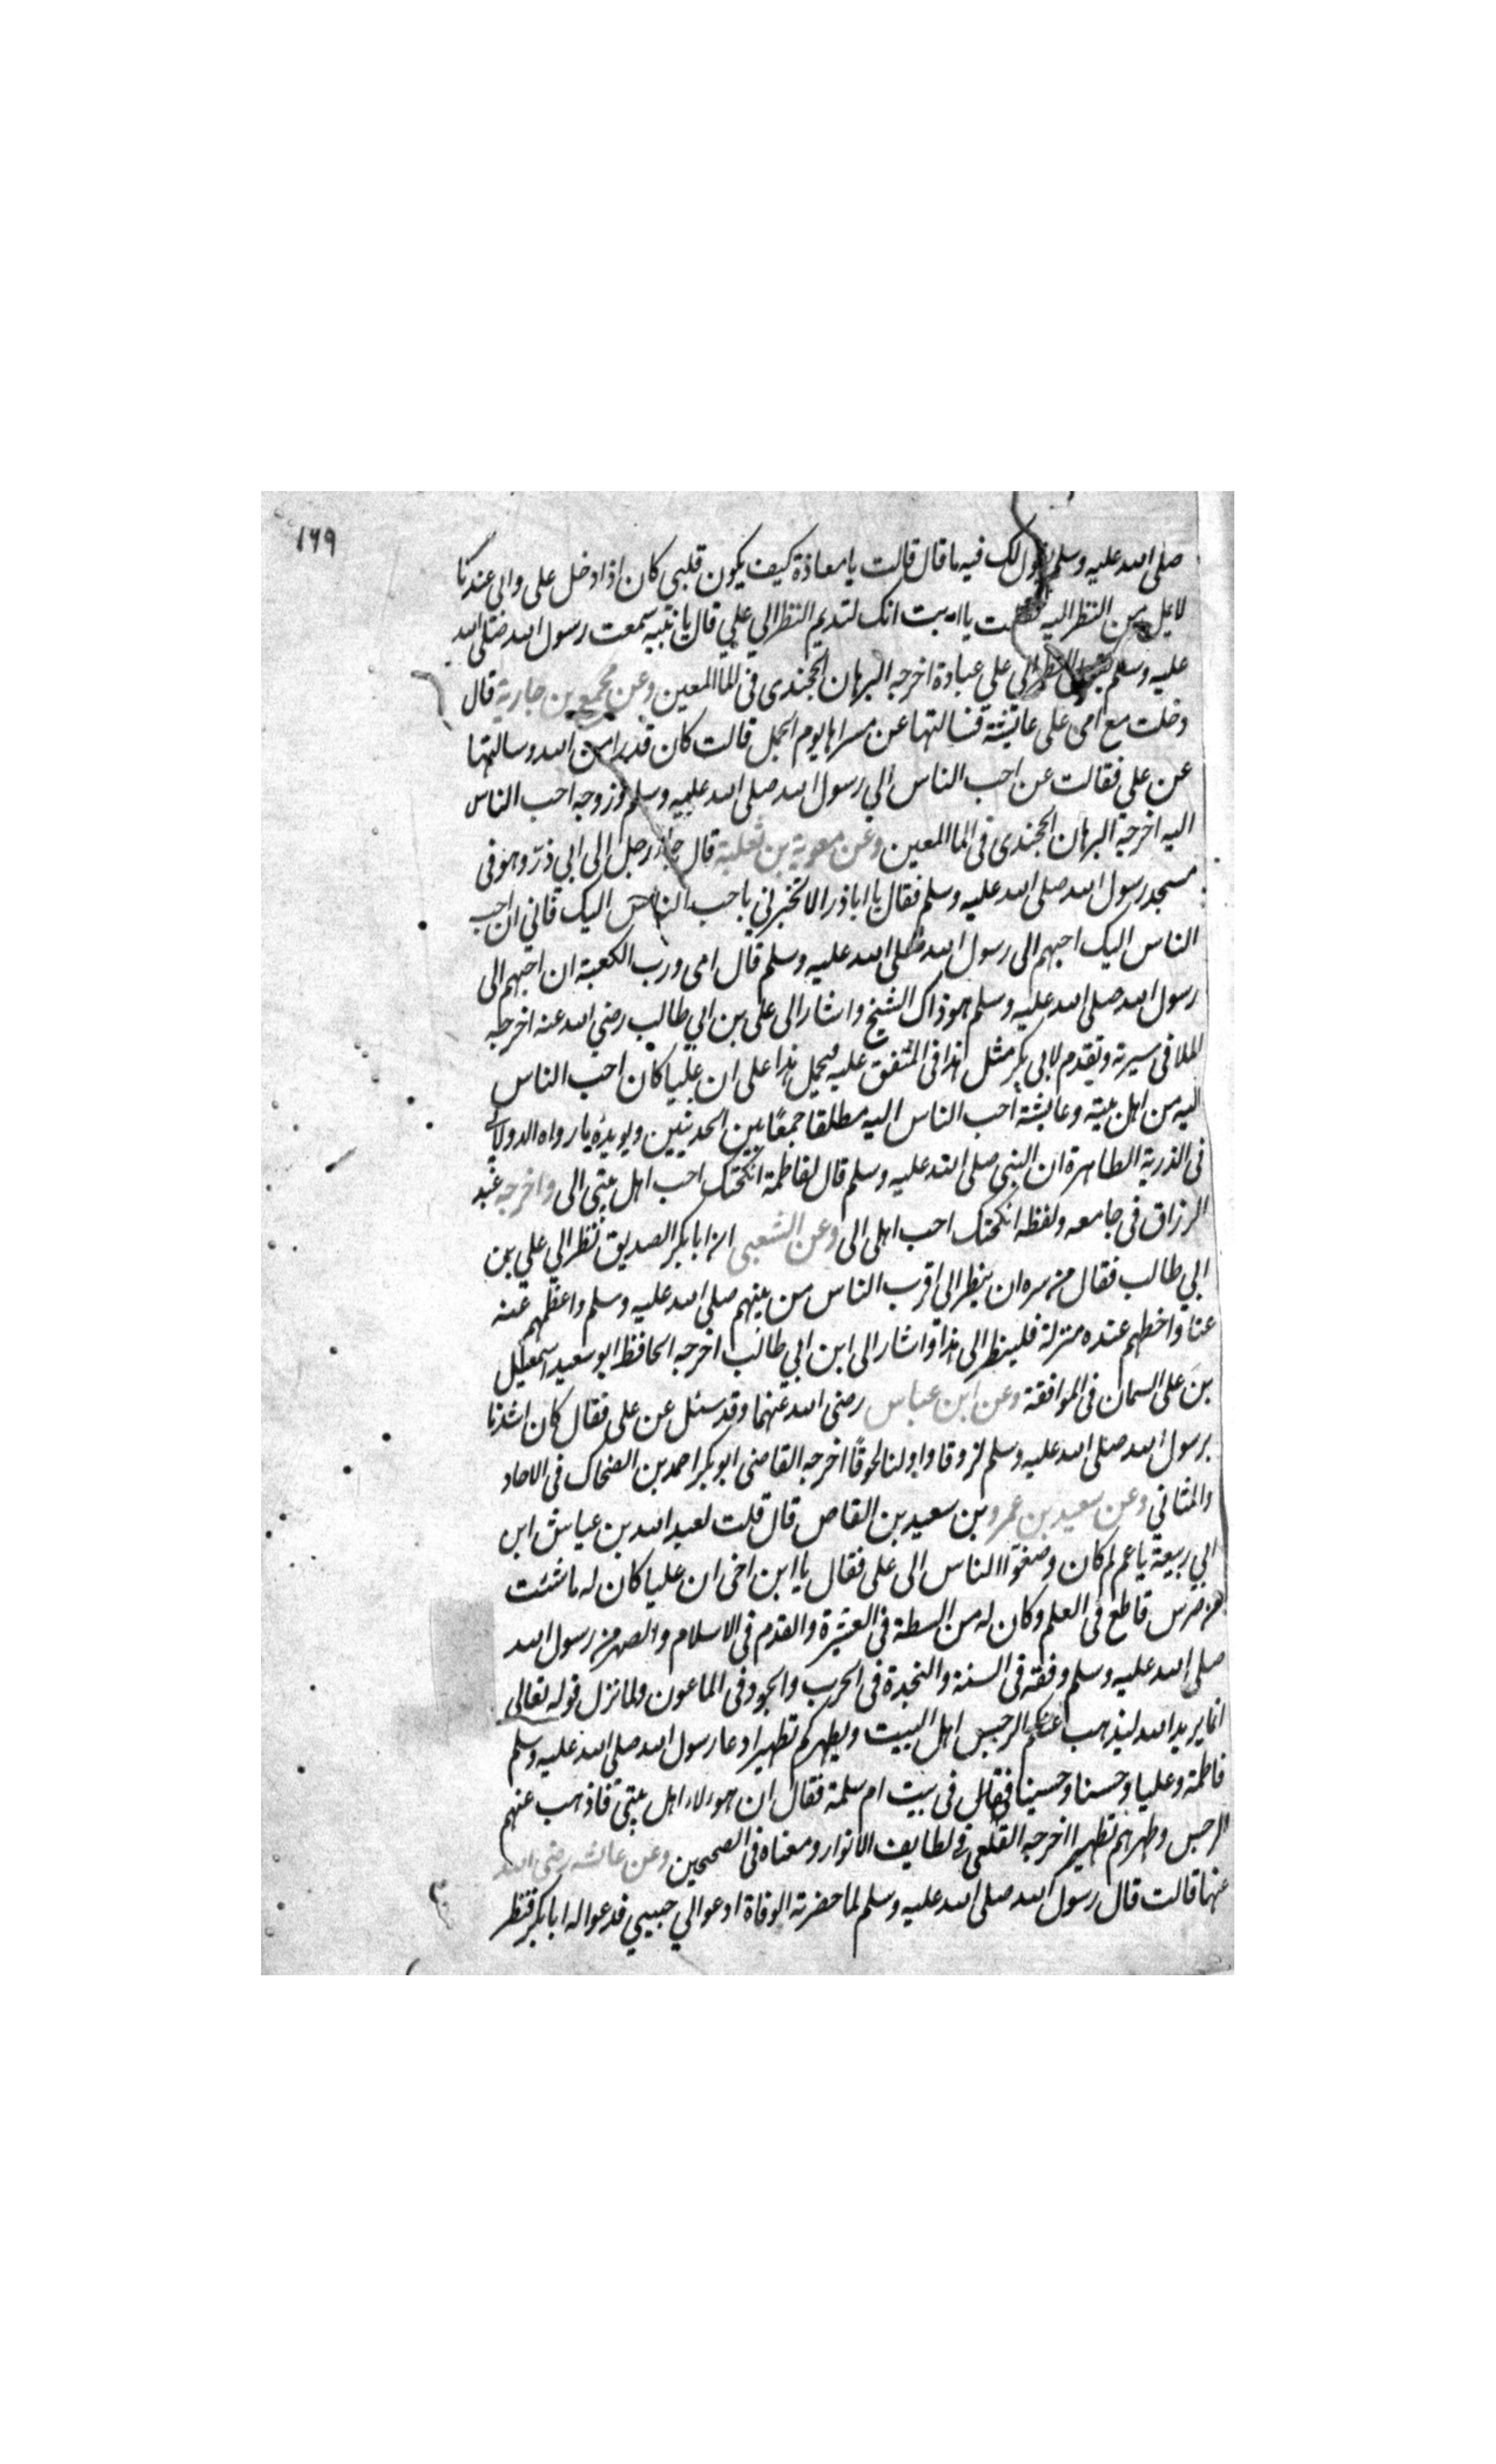 ١٦٩
صلى الله عليه وسلم يقول لك فيه ما قال قالت يا معاذة كيف يكون قلبي كان اذا دخل على وابي عندنا
لا يمل من النظر اليه فقلت يا ابت انك لتديم النظر الي علي قال يا بنية سمعت رسول الله صلى الله
عليه وسلم يقول النظر الي علي عبادة اخرجه البرهان الخجندى فى الما المعين وعن مجمع بن جارية قال
دخلت مع امى على عايشة فسالتها عن مسراها يوم الجمل قالت كان قدرا من الله وسالتها
عن علي فقالت عن احب الناس الي رسول الله صلى الله عليه وسلم وزوجه احب الناس
اليه اخرجه البرهان الخجندى فى الما المعين وعن معوية بن ثعلبة قال جاء رجل الى ابي ذر وهو فى
مسجد رسول الله صلى الله عليه وسلم فقال يا اباذر الا تخبرني باحب الناس اليك فاني ان احب
الناس اليك احبهم الى رسول الله صلى الله عليه وسلم قال امى ورب الكعبة ان احبهم الى
رسول الله صلى الله عليه وسلم هو ذاك الشيخ واشار الى على بن ابي طالب رضي الله عنه اخرجه
الملا فى سيرته وتقدم لابى بكر مثل هذا فى المتفق عليه فيحمل هذا على ان عليا كان احب الناس
اليه من اهل بيته وعايشة احب الناس اليه مطلقا جمعا بين الحديثين ويويده ما رواه الدولابى
فى الذرية الطاهرة ان النبى صلى الله عليه وسلم قال لفاطمة انكحتك احب اهل بيتى الى واخرجه عبد
الرزاق فى جامعه ولفظه انكحتك احب اهلى الى وعن الشعبى ان ابا بكر الصديق نظر الي علي بن
ابي طالب فقال من سره ان ينظر الى اقرب الناس من نبيهم صلى الله عليه وسلم واعظمهم عنه
عنا واخطهم عنده منزلة فلينظر الى هذا واشار الى ابن ابي طالب اخرجه الحافظ ابو سعيد اسمعيل
بن على السمان فى الموافقة وعن ابن عباس رضى الله عنهما وقد سئل عن على فقال كان اشدنا
برسول الله صلى الله عليه وسلم لزوقا واولنا لحوقا اخرجه القاضى ابو بكر احمد بن الضحاك فى الاحاد
والمثاني وعن سعيد بن عمرو بن سعيد بن القاص قال قلت لعبد الله بن عياش ابن
ابي ربيعة يا عم لم كان وصغوا الناس الى على فقال يا ابن اخى ان عليا كان له ما شئت
من ضرس قاطع فى العلم وكان له من السطة فى العشيرة والقدم فى الاسلام والصهر من رسول الله
صلى الله عليه وسلم وفقه فى السنة والنجدة فى الحرب والجود فى الماعون ولما نزل قوله تعالى
انما يريد الله ليذهب عنكم الرجس اهل البيت ويطهركم تطهيرا دعا رسول الله صلى الله عليه وسلم
فاطمة وعليا وحسنا وحسينا فقال فى بيت ام سلمة فقال ان هولاء اهل بيتى فاذهب عنهم
الرجس وطهرهم تطهيرا اخرجه القلعى فى لطايف الانوار ومعناه فى الصحيحين وعن عائشه رضى الله
عنها قالت قال رسول الله صلى الله عليه وسلم لما حضرته الوفاة ادعوا لي حبيبي فدعوا له ابا بكر فنظر